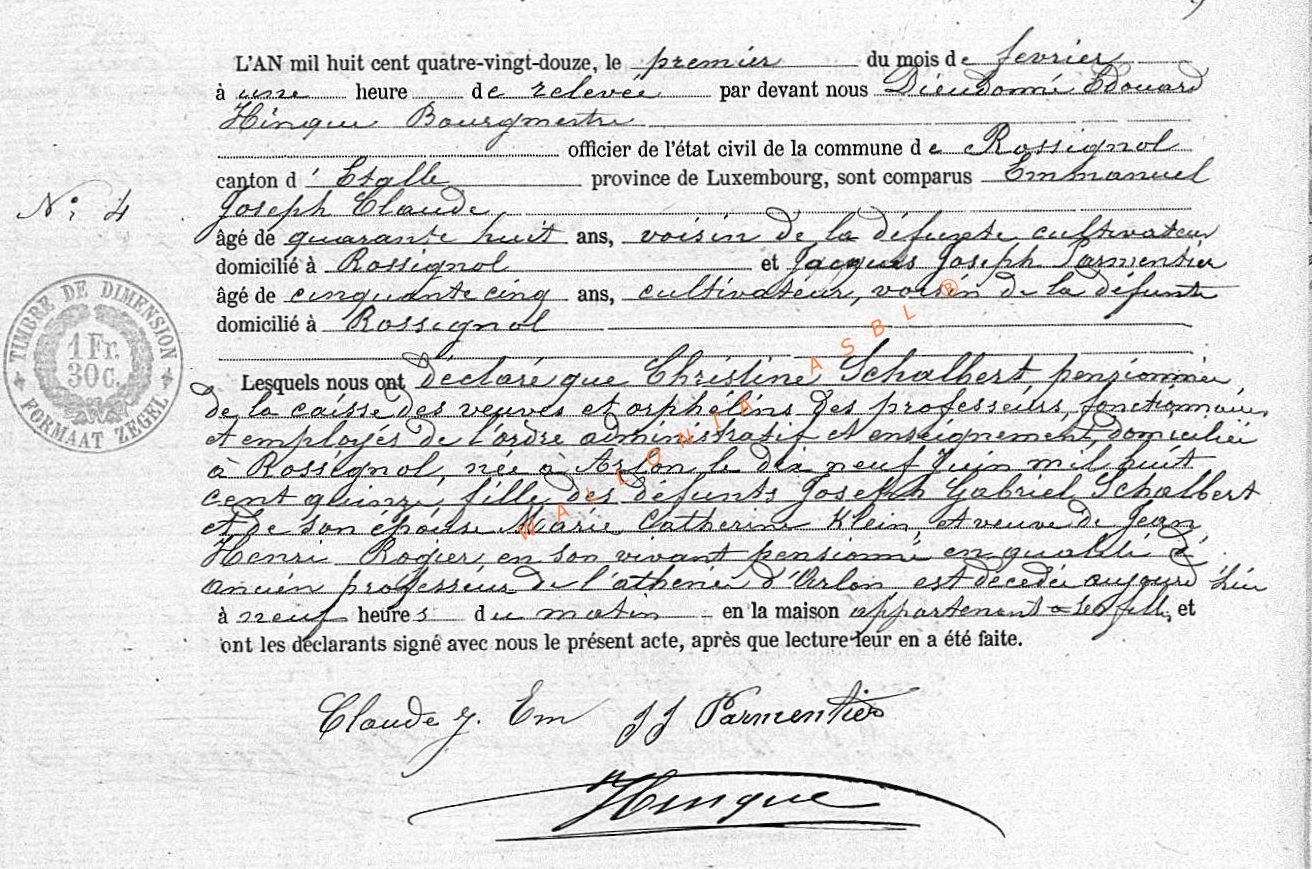 L'AN mil huit cent quatre-vingt-douze, le premier du mois de fevrier
à une heure de relevée par devant nous Dieudonné Edouard
Hinque Bourgmestre
officier de l'état civil de la commune de Rossignol
canton d'Etalle province de Luxembourg, sont comparus Emmanuel
Joseph Claude
N° 4
âgé de quarante huit ans, voisin de la défunte cultivateur
domicilié à Rossignol et Jacques Joseph Parmentier
âgé de cinquante cinq ans, cultivateur, voisin de la défunte
domicilié à Rossignol
TIMBRE DE DIMENSION
1 Fr.
30 C.
FORMAAT ZEGEL
Lesquels nous ont déclaré que Christine Schalbert pensionnée
de la caisse des veuves et orphélins des professeurs, fonctionnaires
et employés de l'ordre administratif et enseignement, domiciliée
à Rossignol, née à Arlon le dix neuf Juin mil huit
cent quinze, fille des défunts Joseph Gabriel Schalbert
et de son épouse Marie Catherine Klein et veuve de Jean
Henri Rogier en son vivant pensionné en qualité d'
ancien professeur de l'athénée d'Arlon est décédée aujourd'hui
à neuf heures du matin en la maison appartenant à sa fille, et
ont les déclarants signé avec nous le présent acte, après que lecture leur en a été faite.
WALLONIA ASBL ®
Claude J. Em JJ Parmentier
Hinque